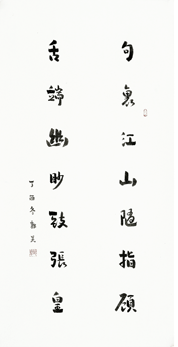 句裏江山隨指顧
舌端幽眇致張皇
丁酉冬